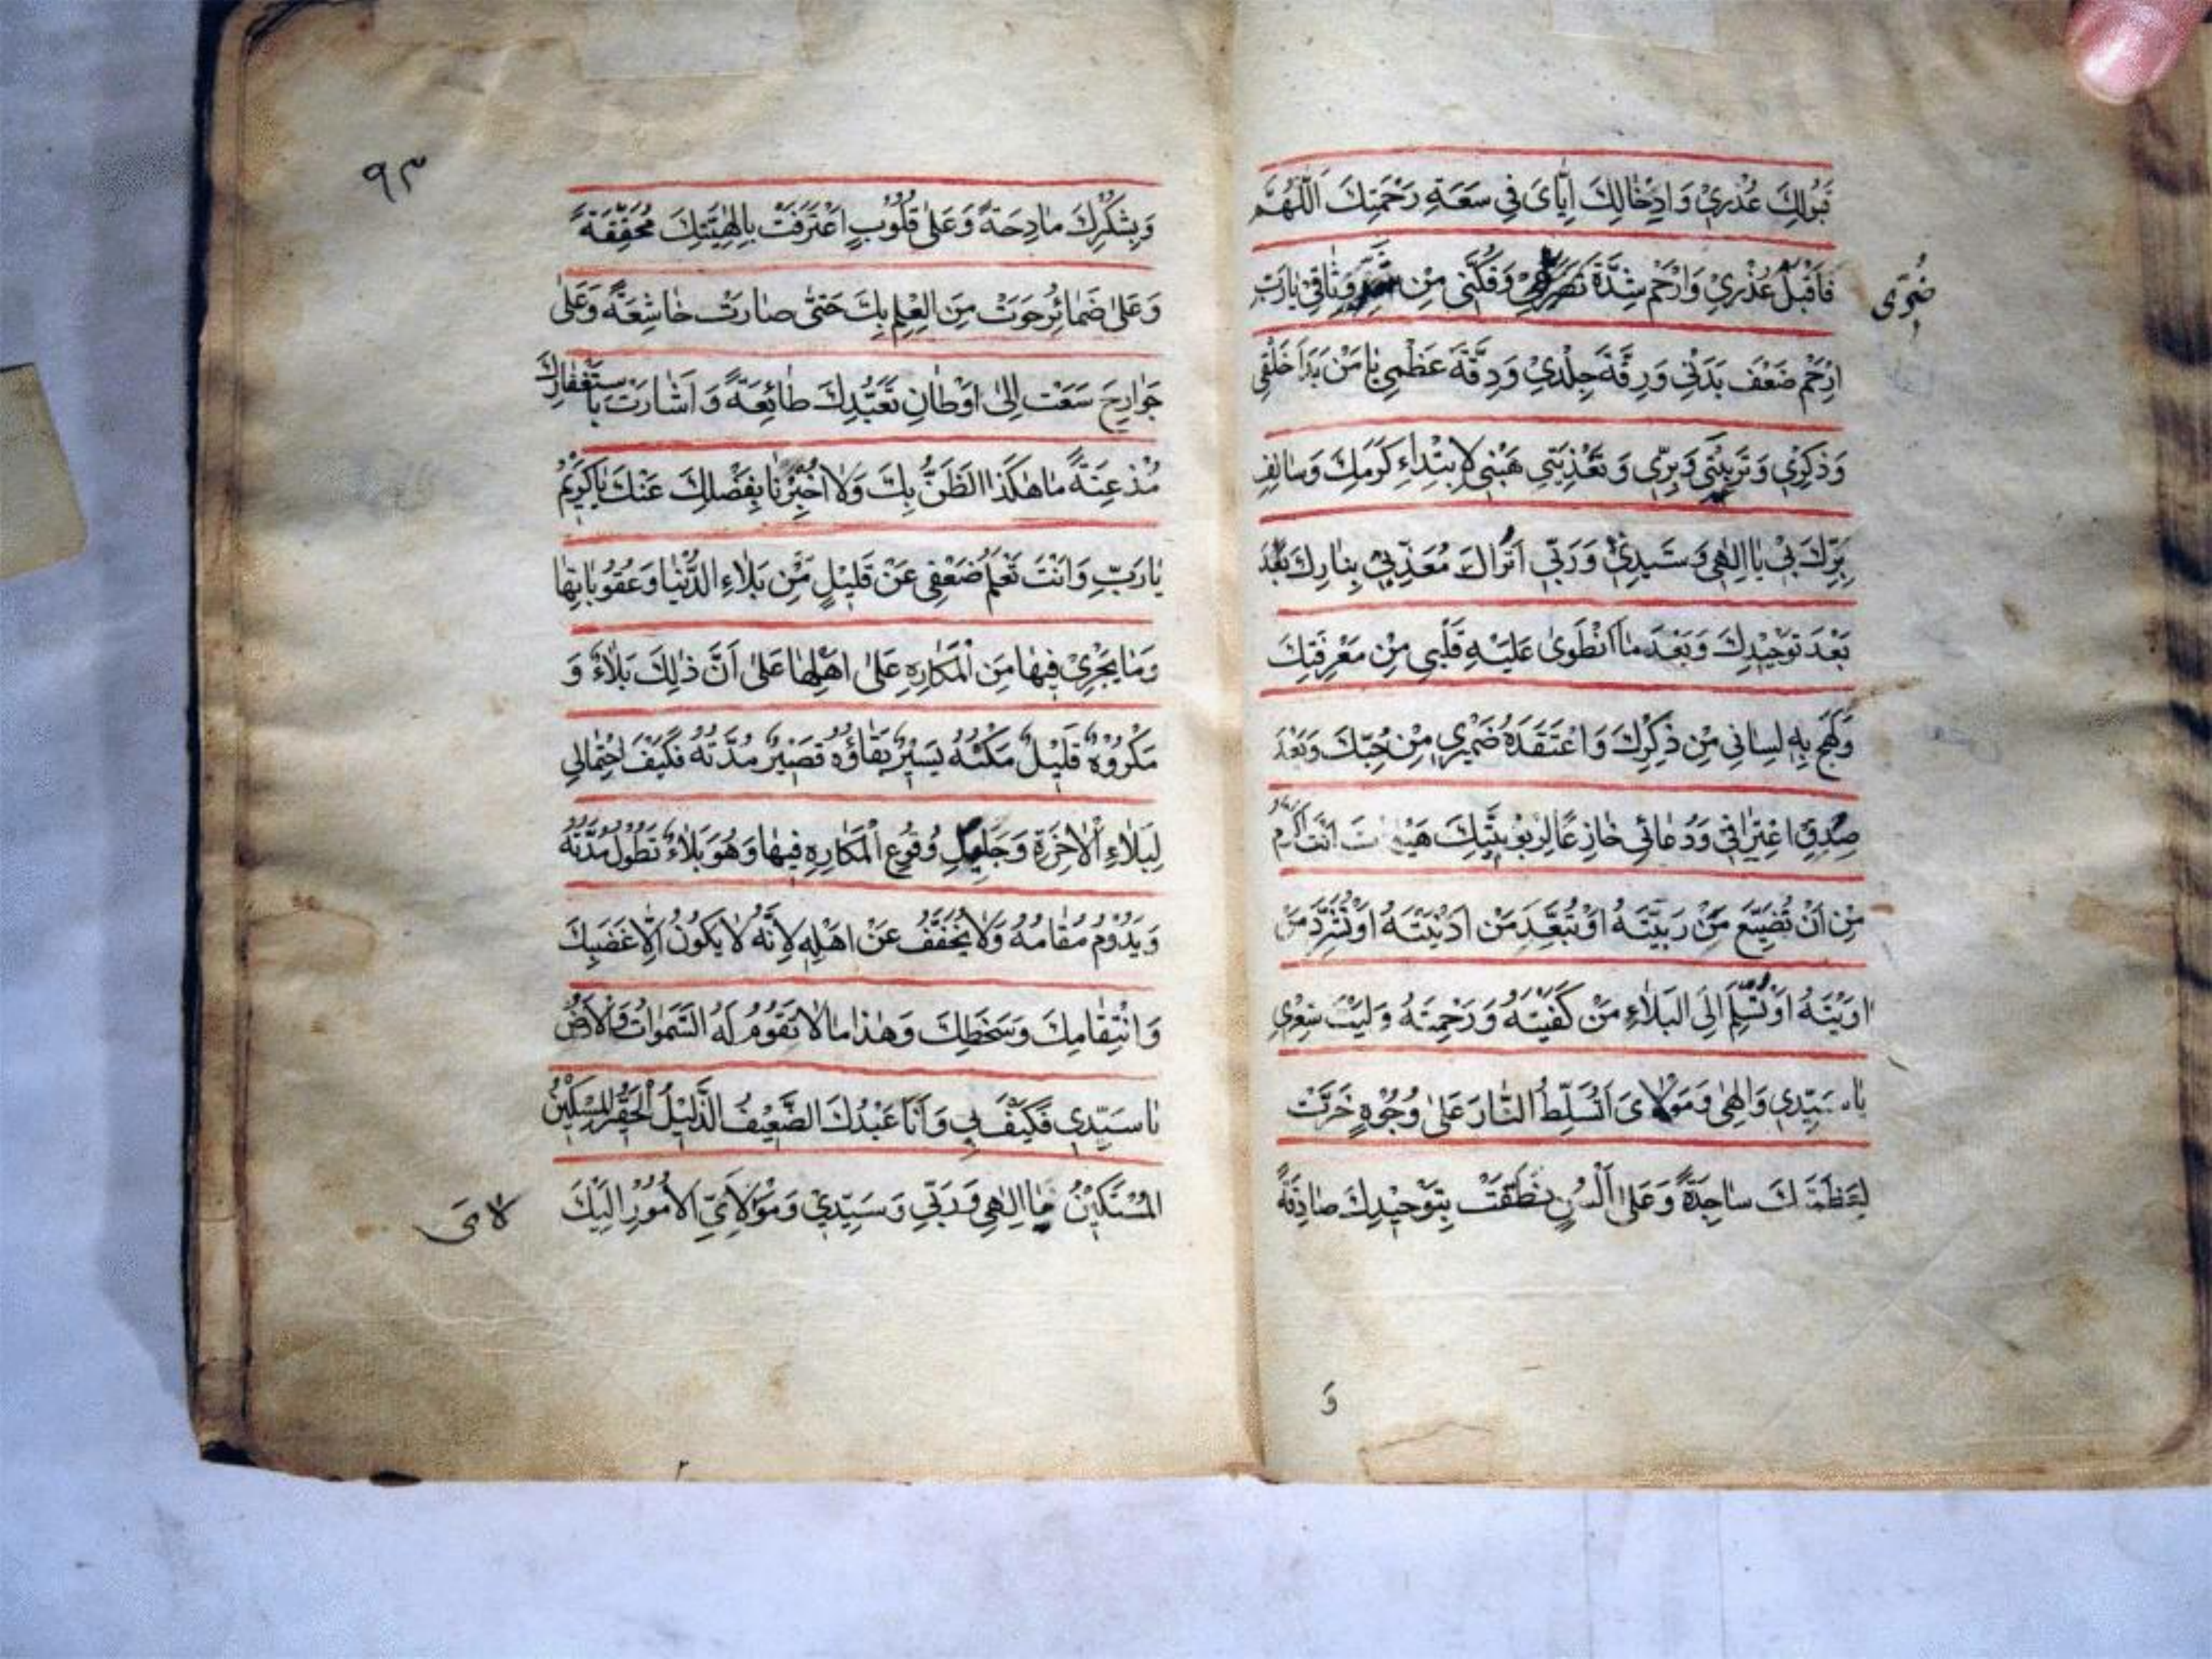 قَبُولِكَ عُذْرِيْ وَ اِدْخٰالِكَ اِيّٰاىَ فِي سَعَةِ رَحْمَتِكَ اَللّٰهُمَّ
فَاَقْبَلْ عُذْرِيْ وَارْحَمْ شِدَّةَ وَفُكَّنِى مِنْ وَثٰاقِى يٰارَبِّ
اِرْحَمْ ضَعْفَ بَدَنِي وَرِقَّةَ جِلْدِيْ وَ دِقَّةَ عَظْمِي يٰا مَنْ بَدَاَ خَلْقِى
وَذِكْرِيْ وَتَرْبِيَتِى وَ بِرِّى وَ تَغْذِيَتِي هَبْنِي لِابْتِدٰاءِ كَرَمِكَ وَسٰالِفِ
بِرِّكَ بِيْ يٰا اِلٰهِى وَ سَيِّدِيْ وَ رَبِّي اَتُرٰاكَ مُعَذِّبِيْ بِنٰارِكَ بَعْدَ
بَعْدَ تَوْحِيْدِكَ وَبَعْدَ مٰا اَنْطَوىٰ عَلَيْهِ قَلْبِي مِنْ مَعْرِفَتِكَ
وَلَهِجَ بِهِ لِسٰانِي مِنْ ذِكْرِكَ وَ اعْتَقَدَهُ ضَمِيْرِي مِنْ حُبِّكَ وَبَعْدَ
صِدْقِ اعْتِرٰافِي وَ دُعٰائِي خٰاضِعًا لِرُبُوْبِيَّتِكَ هَيْهٰاتَ اَنْتَ اَكْرَمُ
مِنْ اَنْ تُضَيِّعَ مَنْ رَبَّيْتَهُ اَوْ تُبَعِّدَ مَنْ اَدْنَيْتَهُ اَوْ تُشَرِّدَ مَنْ
اٰوَيْتَهُ اَوْ تُسَلِّمَ اِلَى البَلٰاءِ مَنْ كَفَيْتَهُ وَ رَحِمْتَهُ وَ لَيْتَ شِعْرِي
يٰا سَيِّدِي وَ اِلٰهِى وَ مَوْلٰاىَ اَتُسَلِّطُ النّٰارَ عَلىٰ وُجُوْهٍ خَرَّتْ
لِعَظَمَتِكَ سٰاجِدَةً وَ عَلىٰ اَلْسُنٍ نَطَقَتْ بِتَوْحِيْدِكَ صٰادِقَةً
وَ
٩٣
وَ بِشُكْرِكَ مٰادِحَةً وَ عَلىٰ قُلُوْبٍ اعْتَرَفَتْ بِاِلٰهِيَّتِكَ مُحَقِّقَةً
وَ عَلىٰ ضَمٰائِرَ حَوَتْ مِنَ الْعِلْمِ بِكَ حَتّىٰ صٰارَتْ خٰاشِعَةً وَ عَلىٰ
جَوٰارِحَ سَعَتْ اِلىٰ اَوْطٰانِ تَعَبُّدِكَ طٰائِعَةً وَ اَشٰارَتْ بِاسْتِغْفٰارِكَ
مُذْعِنَةً مٰا هٰكَذَا الظَّنُّ بِكَ وَلٰا اُخْبِرْنٰا بِفَضْلِكَ عَنْكَ يٰا كَرِيْمُ
يٰا رَبِّ وَ اَنْتَ تَعْلَمُ ضَعْفِى عَنْ قَلِيْلٍ مِنْ بَلٰاءِ الدُّنْيٰا وَ عُقُوْبٰاتِهٰا
وَ مٰا يَجْرِيْ فِيْهٰا مِنَ الْمَكٰارِهِ عَلىٰ اَهْلِهٰا عَلىٰ اَنَّ ذٰلِكَ بَلٰاءٌ وَ
مَكْرُوْهٌ قَلِيْلٌ مَكْثُهُ يَسِيْرٌ بَقٰاؤُهُ قَصِيْرٌ مُدَّتُهُ فَكَيْفَ احْتِمٰالِي
لِبَلٰاءِ الْاٰخِرَةِ وَ جَلِيْلِ وُقُوْعِ الْمَكٰارِهِ فِيْهٰا وَ هُوَ بَلٰاءٌ تَطُوْلُ مُدَّتُهُ
وَ يَدُوْمُ مَقٰامُهُ وَ لٰا يُخَفَّفُ عَنْ اَهْلِهِ لِاَنَّهُ لٰا يَكُوْنُ اِلّٰا غَضَبِكَ
وَ انْتِقٰامِكَ وَ سَخَطِكَ وَ هٰذٰا مٰا لٰا تَقُوْمُ لَهُ السَّمٰوٰاتُ وَالْاَرْضُ
يٰا سَيِّدِي فَكَيْفَ بِي وَ اَنَا عَبْدُكَ الضَّعِيْفُ الذَّلِيْلُ الْحَقِيْرُ الْمِسْكِيْنُ
الْمُسْتَكِيْنُ يٰا اِلٰهِي وَ رَبِّي وَ سَيِّدِيْ وَ مَوْلٰايَ لِاَيِّ الْاُمُوْرِ اِلَيْكَ